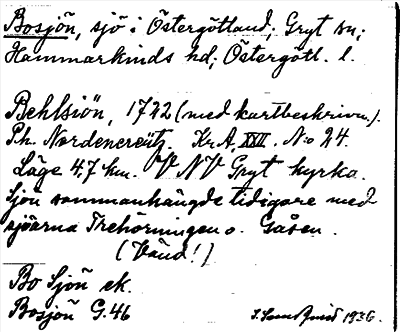 Bosjön, sjö i Östergötland; Gryt sn;
Hammarkinds hd; Östergötl. l.
Behlsiön, 1722 (med kartbeskrivn.).
Ph. Nordencreütz. Kr.A. XXII. No 24.
Läge 4.7 km. V NV Gryt kyrka.
Sjön sammanhängde tidigare med
sjöarna Trehörningen o. Gåsen.
(Vänd!)
Bo Sjön ek.
Bosjön G.46
1936.